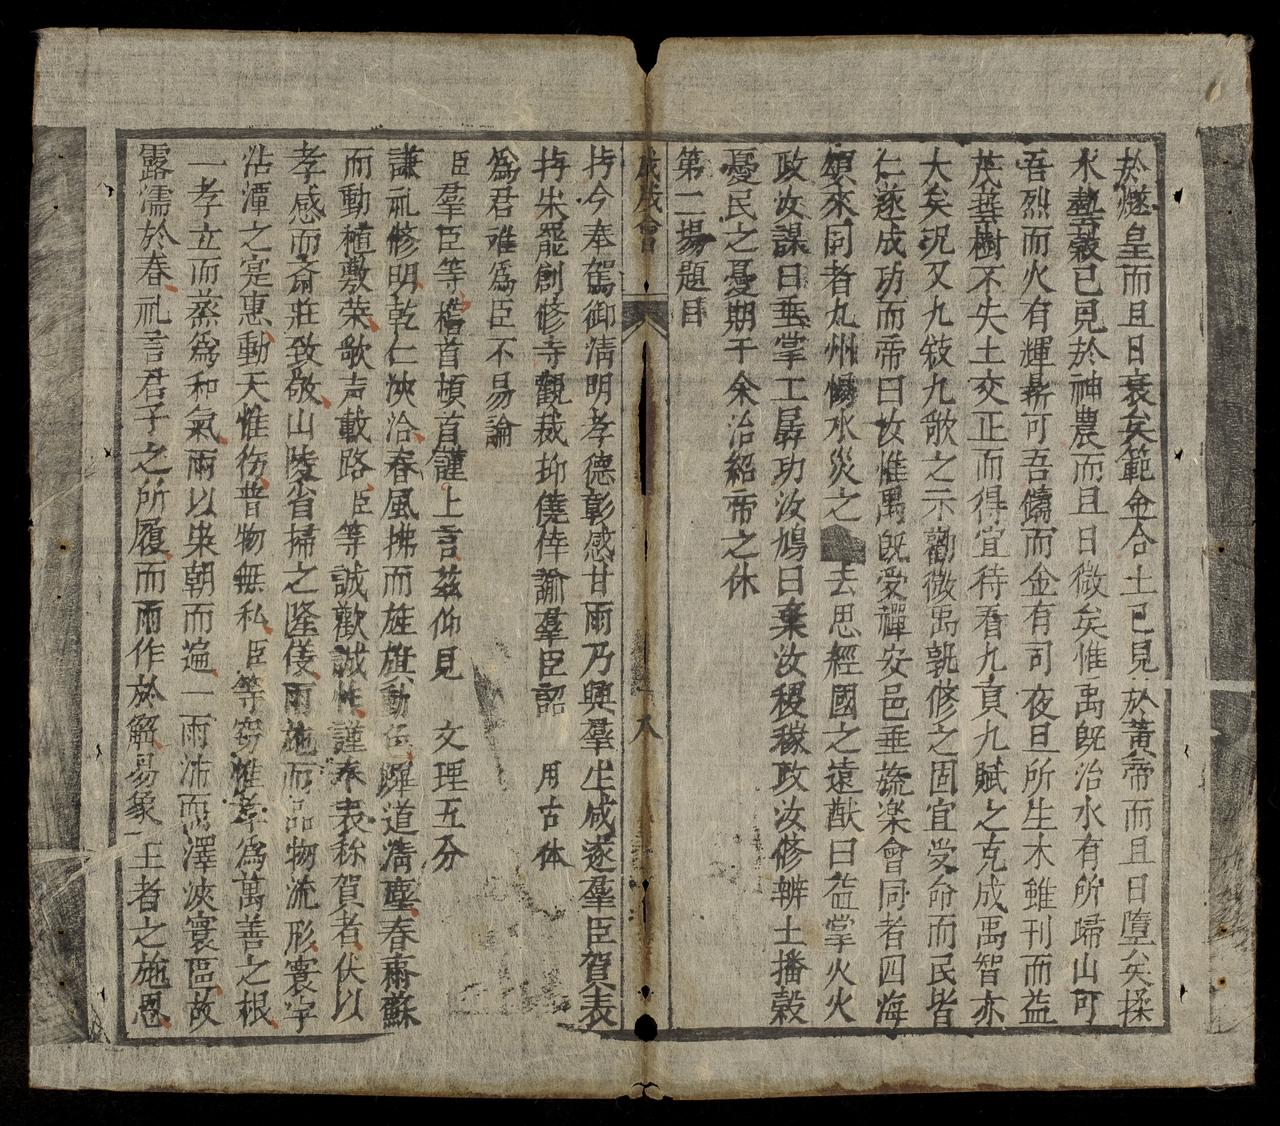 於燧皇而且日衰矣範金合土已見於黃帝而且日墮矣揉
木藝穀已見於神農而且日微矣惟禹既治水有所歸山可
吾烈而火有輝㬢可吾鑄而金有司夜旦所生木雖刊而益
茂藝樹不失土交正而得宜待看九貢九賦之克成禹智亦
大矣況又九敍九歌之示勸微禹孰修之固宜受命而民皆
仁遂成功而帝曰汝惟禹既受禪安邑垂旒楽會同者四海
頌來同者九州懶水災之去思經國之遠猷曰益掌火火
政汝謀曰垂掌工工功汝鳩曰棄汝稷稼政汝修辨土播穀
憂民之憂期于余治紹帝之休
第二場題目
盛會
八
抍今奉駕御清明孝德彰感甘雨乃興羣生咸遂羣臣賀表
抍朱罷創修寺觀裁抑僥倖諭羣臣詔 用古体
為君难為臣不易論
臣羣臣等稽首頓首謹上言茲仰見 文理五分
謙礼修明乾仁浹洽春風拂而旌旗動伝蹕道清塵春雨蘇
而動植敷荣歌声載路臣等誠歡誠忭謹奉表称賀者伏以
孝感而斎莊致敬山陵省掃之隆儀雨施而品物流形寰宇
沾潭之寔惠動天惟徳普物無私臣等窃惟孝為萬善之根
一孝立而蒸為和氣雨以崇朝而遍一雨沛而澤浹寰區故
露濡於春礼言君子之所履而雨作於解易象王者之施恩